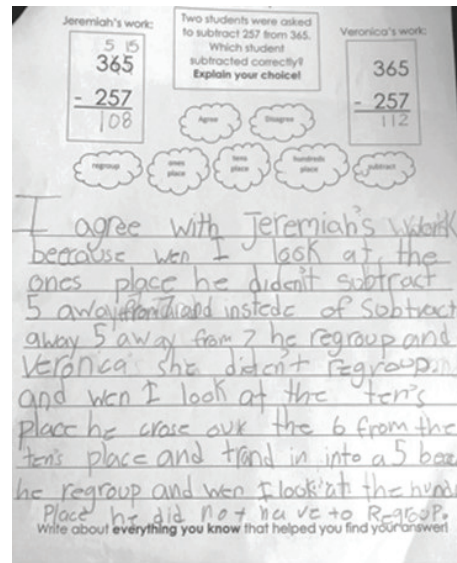 Jeremiah's work:
5 15
365
- 257
108
Two students were asked
to subtract 257 from 365.
Which student
subtracted correctly?
Explain your choice!
Veronica's work:
365
- 257
112
Agree
Disagree
regroup
ones
place
tens
place
hundreds
place
subtract
I agree with Jeremiah's
because wen I look at the
ones place he diden't subtract
5 away from 7 and instede of Subtract
away 5 away from 7 he regroup and
Veronica she diden't regroup.
and wen I look at the ten's
place he crose the 6 from the
ten's place and in into a 5
he regroup and wen I look at the
Place he did not have to Regroup.
Write about everything you know that helped you find your answer!